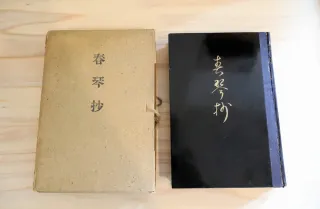 春
琴
抄
春琴抄